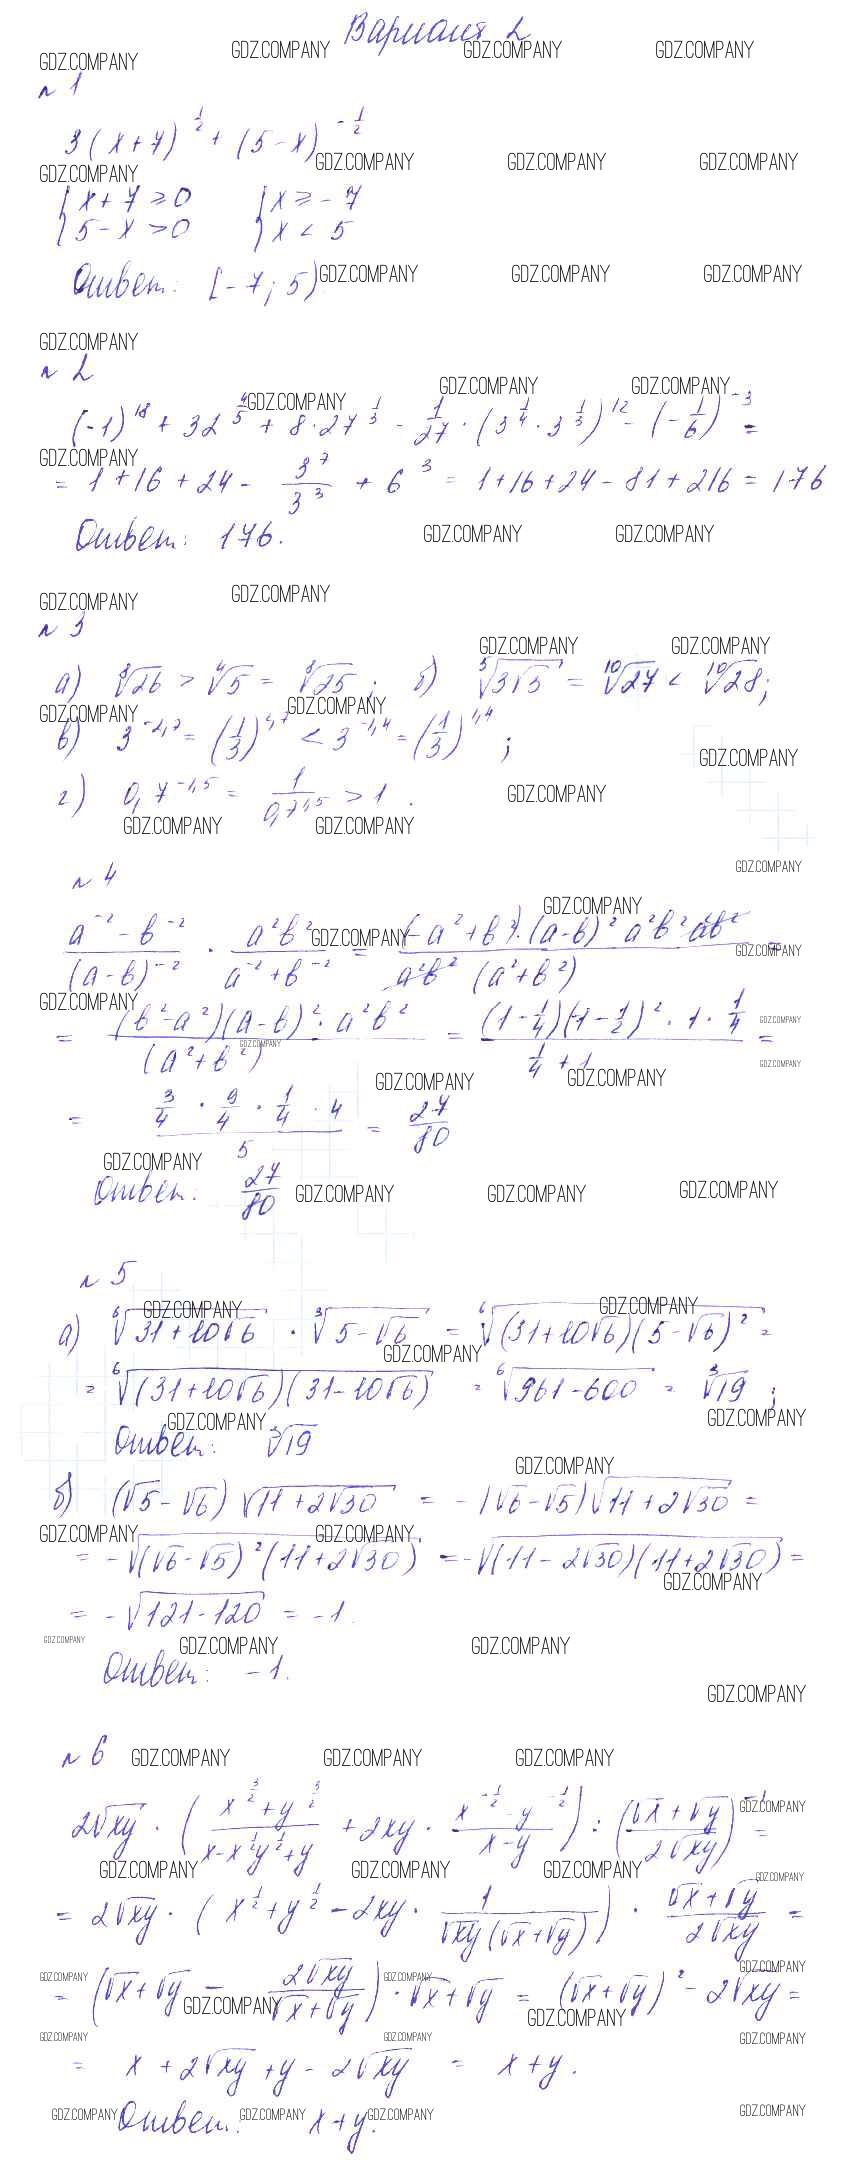 Вариант 2
GDZ.COMPANY GDZ.COMPANY GDZ.COMPANY GDZ.COMPANY
№ 1
3(x+7)^{1/2} + (5-x)^{-1/2}
GDZ.COMPANY GDZ.COMPANY GDZ.COMPANY GDZ.COMPANY
{x+7≥0 {x≥-7
{5-x>0 {x<5
Ответ: [-7; 5)
GDZ.COMPANY GDZ.COMPANY GDZ.COMPANY
GDZ.COMPANY
№ 2
GDZ.COMPANY GDZ.COMPANY GDZ.COMPANY
(-1)^{18} + 32^{4/5} + 8·27^{1/3} - 1/27·(3^{1/4}·3^{1/3})^{12} - (-1/6)^{-3} =
GDZ.COMPANY
= 1+16+24- 3^7/3^3 + 6^3 = 1+16+24-81+216 = 176
Ответ: 176.
GDZ.COMPANY GDZ.COMPANY
GDZ.COMPANY GDZ.COMPANY
№ 3
GDZ.COMPANY GDZ.COMPANY
а) ⁸√26 > ⁴√5 = ⁸√25; б) ⁵√(3√3) = ¹⁰√27 < ¹⁰√28;
GDZ.COMPANY GDZ.COMPANY
GDZ.COMPANY
г) 0,7^{-1,5} = 1/0,7^{1,5} > 1.
GDZ.COMPANY
GDZ.COMPANY GDZ.COMPANY
№ 4
GDZ.COMPANY
GDZ.COMPANY
(a^{-2} - b^{-2})/(a-b)^{-2} · a²b²/(a^{-2}+b^{-2}) = (-a²+b²)·(a-b)² a²b² a²b²/(a²b² (a²+b²)) =
GDZ.COMPANY GDZ.COMPANY
GDZ.COMPANY GDZ.COMPANY
= (b²-a²)(a-b)²·a²b²/(a²+b²) = (1-1/4)(-1-1/2)²·1·1/4/(1/4+1) =
GDZ.COMPANY GDZ.COMPANY
GDZ.COMPANY GDZ.COMPANY
= 3/4·9/4·1/4·4/5 = 27/80
GDZ.COMPANY
Ответ: 27/80
GDZ.COMPANY GDZ.COMPANY GDZ.COMPANY
№ 5
GDZ.COMPANY GDZ.COMPANY
а) ⁶√(31+10√6) · ³√(5-√6) = ⁶√((31+10√6)(5-√6)²) =
GDZ.COMPANY
= ⁶√((31+10√6)(31-10√6)) = ⁶√(961-600) = ³√19;
GDZ.COMPANY GDZ.COMPANY
Ответ: ³√19
GDZ.COMPANY
б) (√5-√6)√(11+2√30) = -(√6-√5)√(11+2√30) =
GDZ.COMPANY GDZ.COMPANY
= -√((√6-√5)²(11+2√30)) = -√((11-2√30)(11+2√30)) =
GDZ.COMPANY
= -√(121-120) = -1.
GDZ.COMPANY GDZ.COMPANY GDZ.COMPANY
Ответ: -1.
GDZ.COMPANY
№ 6
GDZ.COMPANY GDZ.COMPANY GDZ.COMPANY
GDZ.COMPANY
2√xy · ((x^{3/2}+y^{3/2})/(x-x^{1/2}y^{1/2}+y) + 2xy · (x^{-1/2}-y^{-1/2})/(x-y)) : ((√x+√y)/(2√xy))^{-1} =
GDZ.COMPANY GDZ.COMPANY GDZ.COMPANY GDZ.COMPANY
= 2√xy · (x^{1/2}+y^{1/2} - 2xy · 1/(√xy(√x+√y))) · (√x+√y)/(2√xy) =
GDZ.COMPANY GDZ.COMPANY GDZ.COMPANY
= (√x+√y - 2√xy/(√x+√y)) · √x+√y = (√x+√y)² - 2√xy =
GDZ.COMPANY GDZ.COMPANY
GDZ.COMPANY GDZ.COMPANY GDZ.COMPANY
= x+2√xy+y-2√xy = x+y.
GDZ.COMPANY GDZ.COMPANY GDZ.COMPANY GDZ.COMPANY
Ответ: x+y.